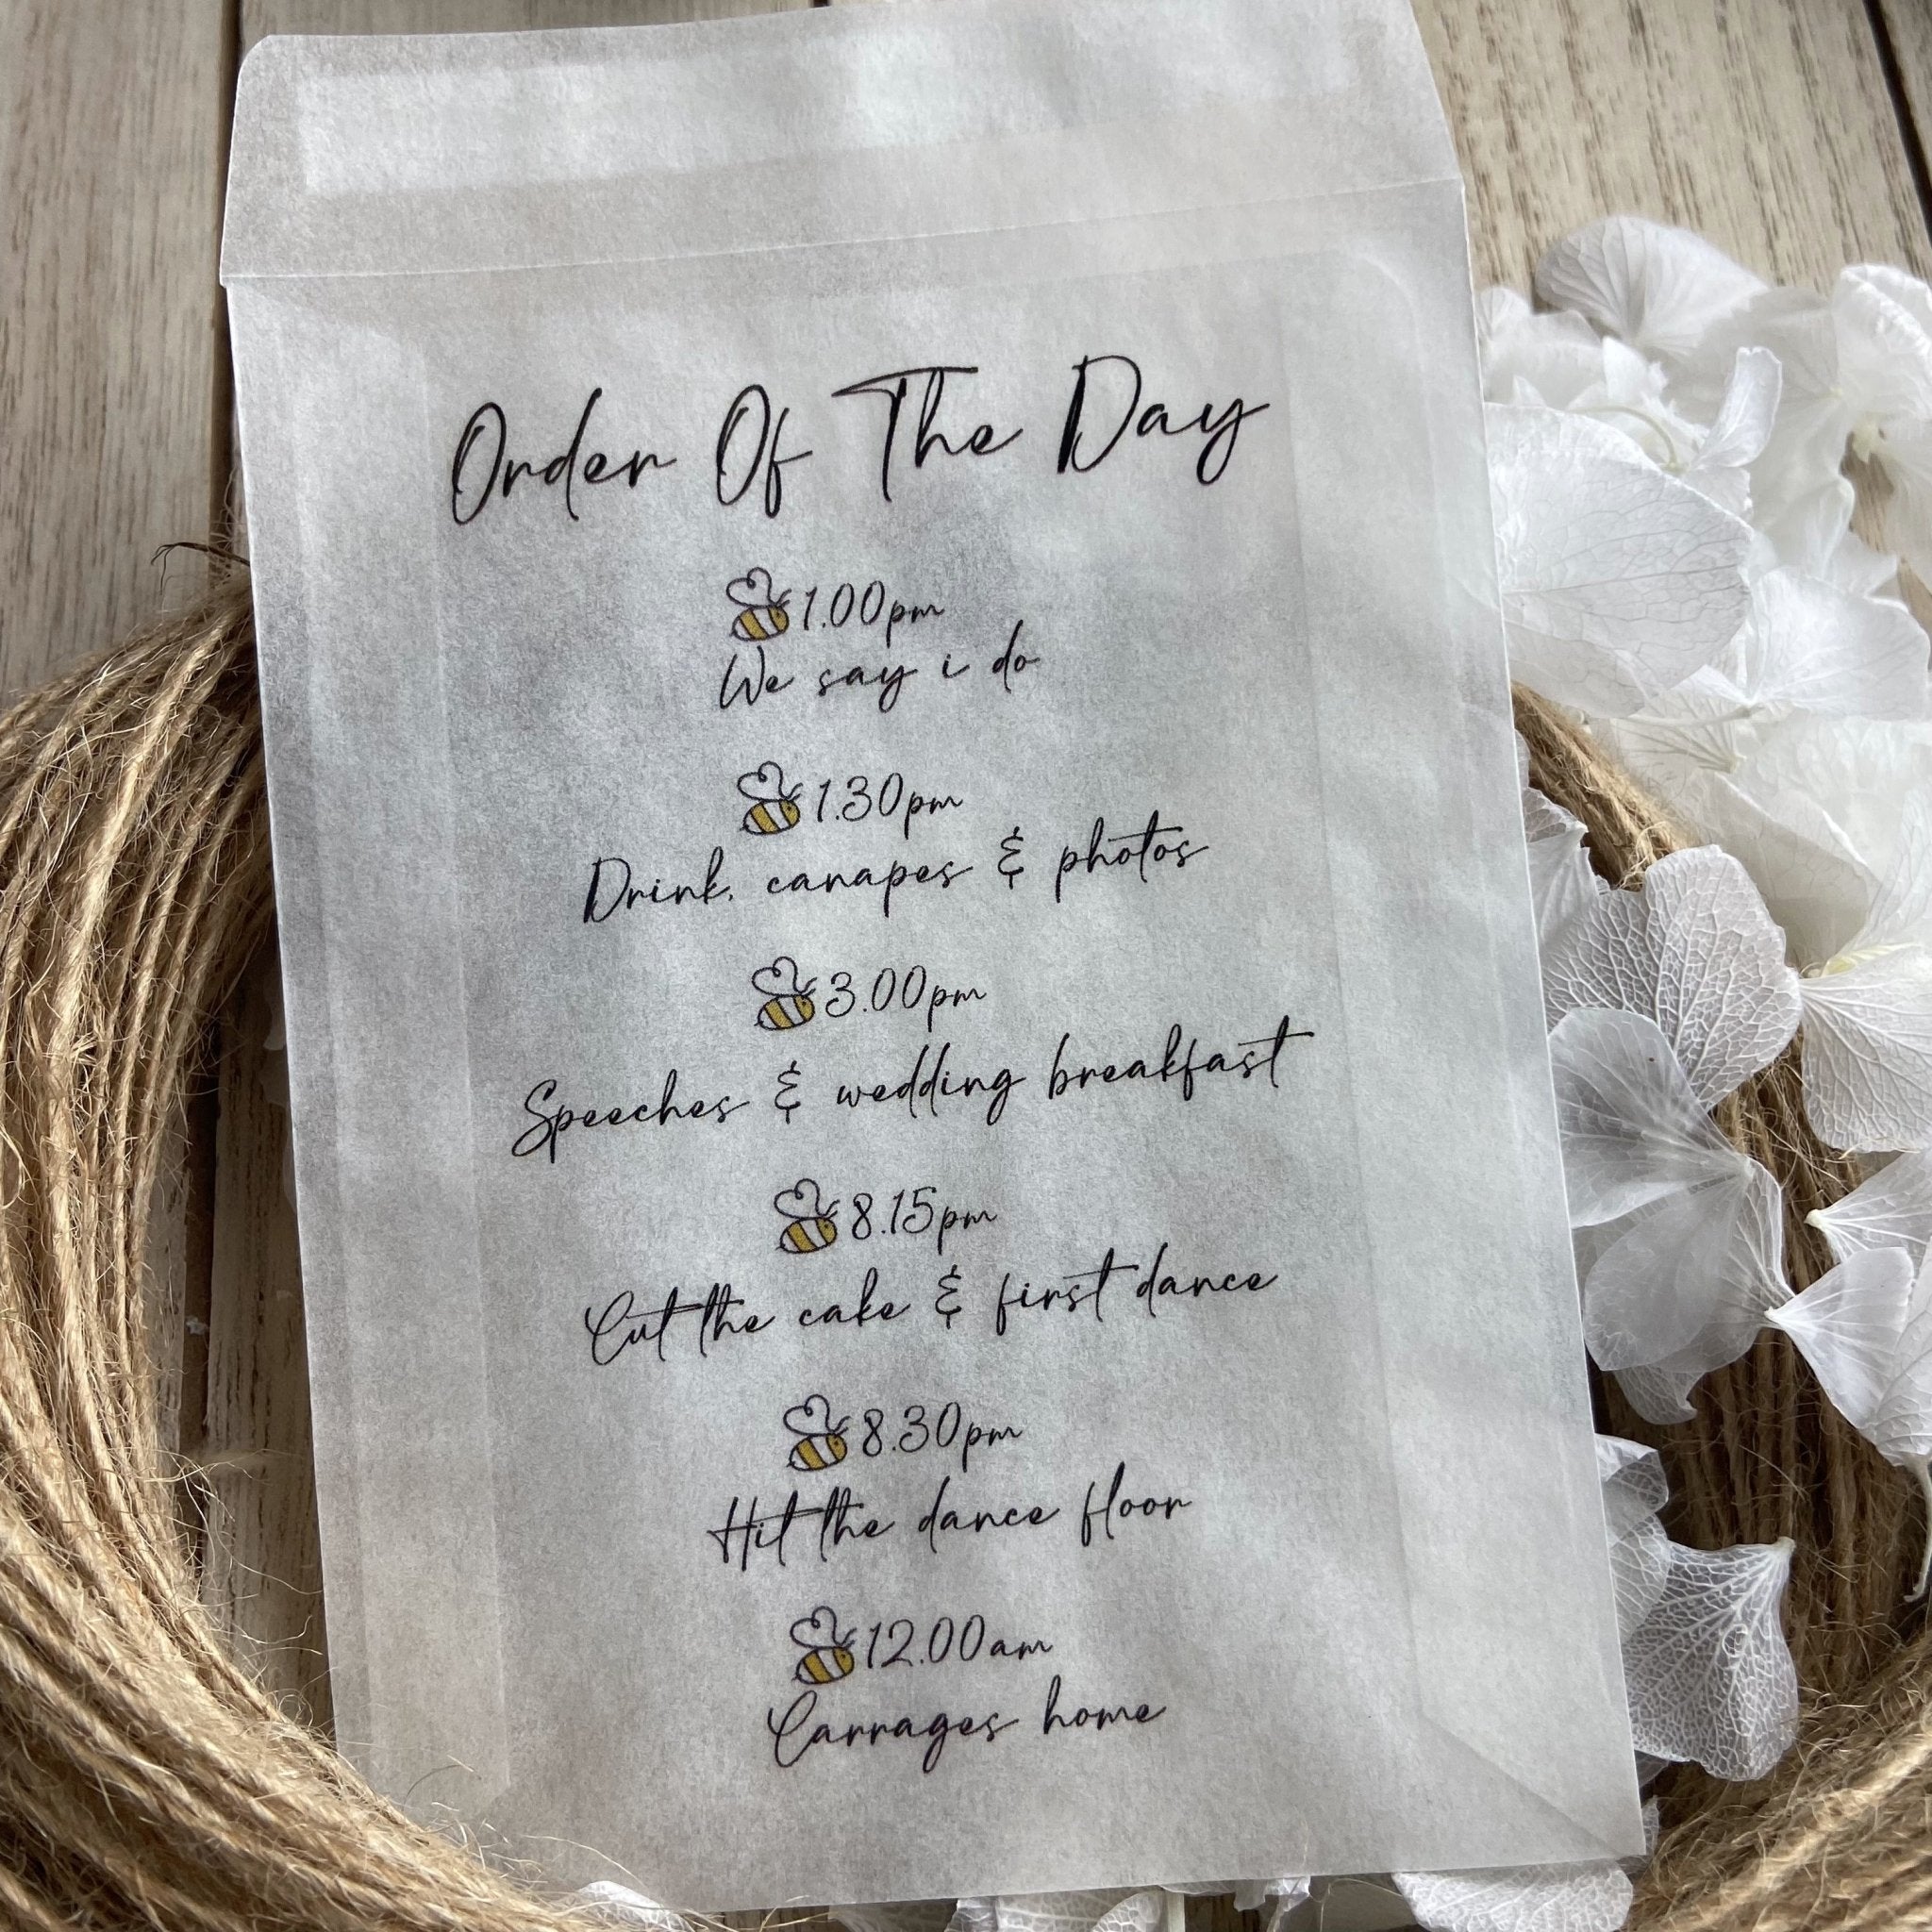 Order Of The Day
1.00pm
We say i do
1.30pm
Drink, canapes & photos
3.00pm
Speeches & wedding breakfast
8.15pm
Cut the cake & first dance
8.30pm
Hit the dance floor
12.00am
Carrages home